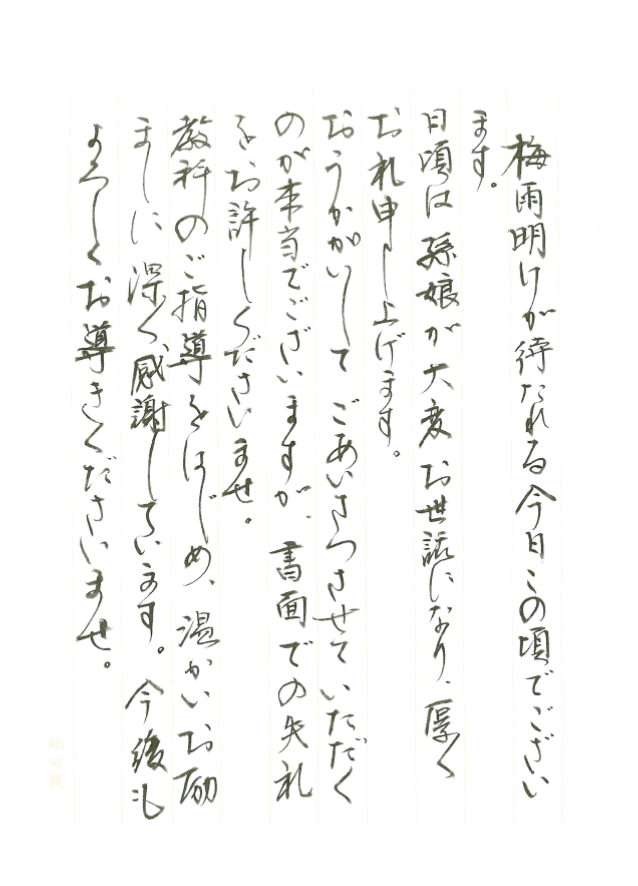 梅雨明けが待たれる今日この頃でござい
ます。
日頃は孫娘が大変お世話になり、厚く
お礼申し上げます。
おうかがいして ごあいさつさせていただく
のが本当でございますが、書面での失礼
をお許しくださいませ。
教科のご指導をはじめ、温かいお励
ましに深く感謝しています。今後も
よろしくお導きくださいませ。